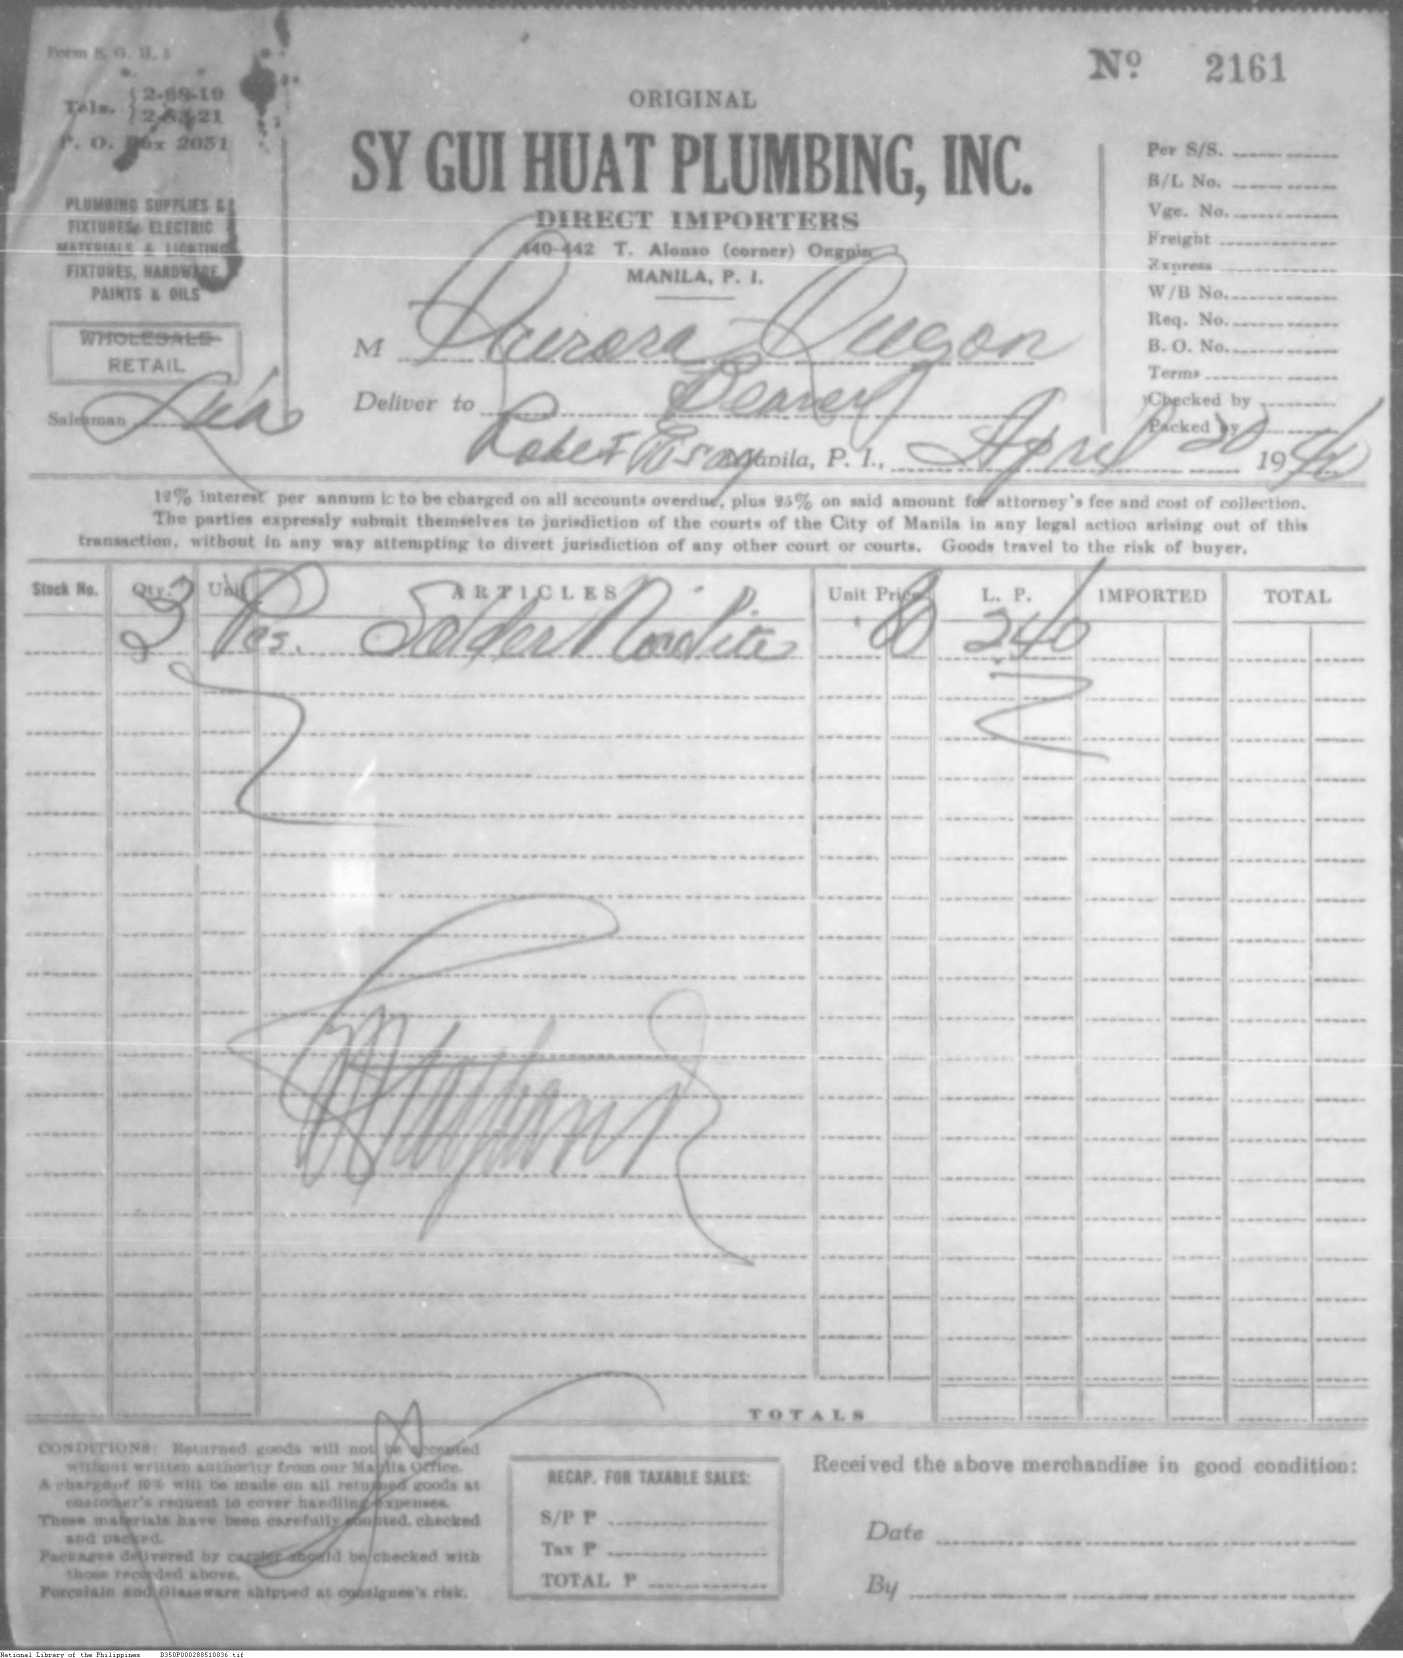 Form S. G. H. 1
Tels. { 2-68-19
2-83-21
P. O. Box 2031
PLUMBING SUPPLIES &
FIXTURES, ELECTRIC
MATERIALS & LIGHTING
FIXTURES, HARDWARE,
PAINTS & OILS
WHOLESALE
RETAIL
Salesman
ORIGINAL
SY GUI HUAT PLUMBING, INC.
DIRECT IMPORTERS
440-442 T. Alonso (corner) Ongpin
MANILA, P. I.
M Aurora Quezon
Deliver to Bearer
Manila, P. I., April 20 1940
Nº 2161
Per S/S.
B/L No.
Vge. No.
Freight
Express
W/B No.
Req. No.
B. O. No.
Terms
Checked by
Packed by
12% interest per annum is to be charged on all accounts overdue, plus 25% on said amount for attorney's fee and cost of collection.
The parties expressly submit themselves to jurisdiction of the courts of the City of Manila in any legal action arising out of this
transaction, without in any way attempting to divert jurisdiction of any other court or courts. Goods travel to the risk of buyer.
Stock No. Qty. Unit ARTICLES Unit Price L. P. IMPORTED TOTAL
3 Pcs. Solder .80 2 40
TOTALS
CONDITIONS: Returned goods will not be accepted
without written authority from our Manila Office.
A charge of 10% will be made on all returned goods at
customer's request to cover handling expenses.
These materials have been carefully counted, checked
and packed.
Packages delivered by carrier should be checked with
those recorded above.
Porcelain and Glassware shipped at consignee's risk.
RECAP. FOR TAXABLE SALES:
S/P ₱
Tax ₱
TOTAL ₱
Received the above merchandise in good condition:
Date
By
National Library of the Philippines B350P000288510836.tif